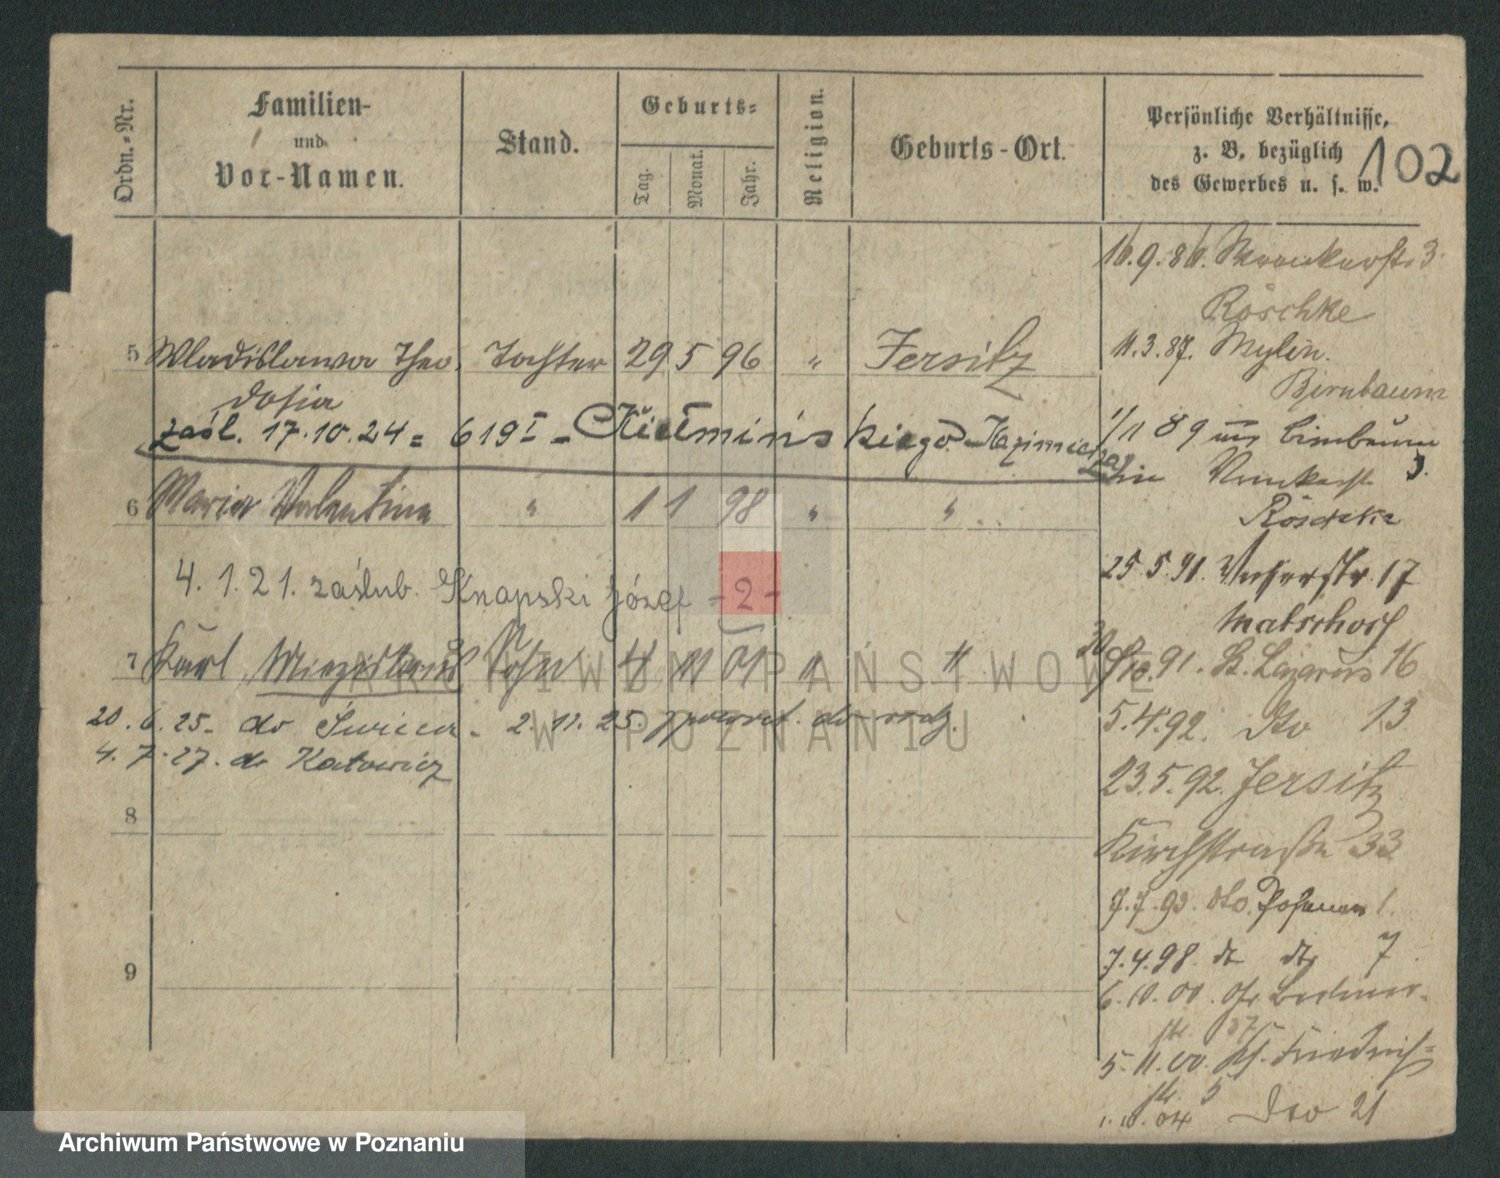 Ordn.-Nr.
Familien-
und
Vor-Namen.
Stand.
Geburts-
Tag.
Monat.
Jahr.
Religion.
Geburts-Ort.
Persönliche Verhältnisse,
z. B. bezüglich
des Gewerbes u. s. w.
102
5 Wladislawa Theo- Tochter 29 5 96 " Jersitz
dosia
zaśl. 17.10.24 = 619 I - Kiełmińskiego Kazimierza
6 Maria Valentina " 1 1 98 " "
4. 1. 21. zaślub. Knapski Józef - 2 -
7 Karl Miezislaus Sohn 4 11 01 " "
20. 6. 25. do - 2. 11. 25. powrót do rodz.
4. 7. 27. do Katowic
8
9
16.9.86. 3.
Röschke
11.3.87. Mylin.
Birnbaum
1/11 89 aus Birnbaum
3.
Röschke
25.5.91. 17
Matschoss
10.91. St. Lazarus 16
5.4.92. dto 13
23.5.92. Jersitz
Kirchstraße 33
7.7.93. dto. Posener 1.
7.4.98. dto dto 7
6.10.00. Berliner-
str. 37
5.11.00. Friedrich-
str. 5
1.10.04 dto 21
ARCHIWUM PAŃSTWOWE
W POZNANIU
Archiwum Państwowe w Poznaniu